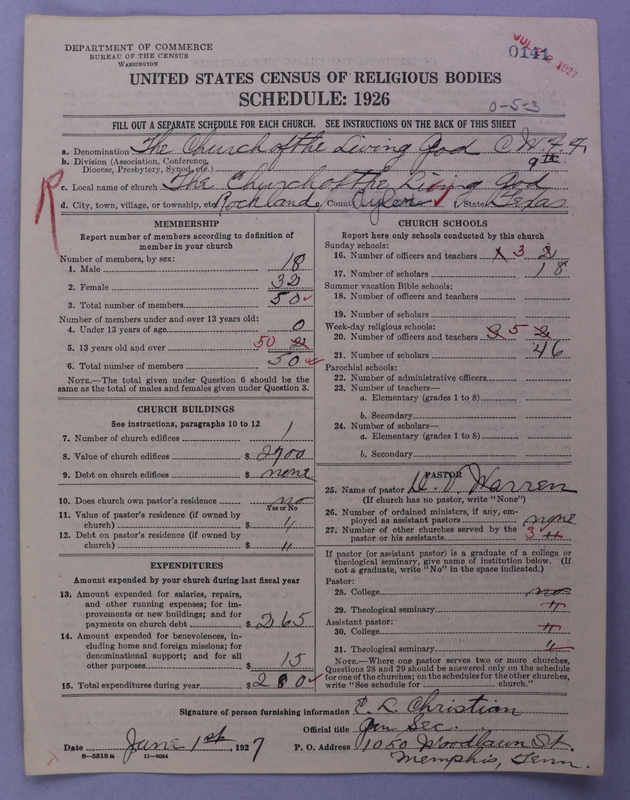 DEPARTMENT OF COMMERCE
BUREAU OF THE CENSUS
WASHINGTON
0141
UNITED STATES CENSUS OF RELIGIOUS BODIES
SCHEDULE: 1926
0-5-3
FILL OUT A SEPARATE SCHEDULE FOR EACH CHURCH. SEE INSTRUCTIONS ON THE BACK OF THIS SHEET
a. Denomination The Church of the Living God C.W.F.F.
b. Division (Association, Conference, Diocese, Presbytery, Synod, etc.) 9th
c. Local name of church The Church of the Living God
d. City, town, village, or township, etc. Rockland County Tyler State Texas
R
MEMBERSHIP
Report number of members according to definition of member in your church
Number of members, by sex:
1. Male 18
2. Female 32
3. Total number of members 50
Number of members under and over 13 years old:
4. Under 13 years of age 0
5. 13 years old and over 50
6. Total number of members 50
NOTE.—The total given under Question 6 should be the same as the total of males and females given under Question 3.
CHURCH BUILDINGS
See instructions, paragraphs 10 to 12
7. Number of church edifices 1
8. Value of church edifices $ 2700
9. Debt on church edifices $ none
10. Does church own pastor's residence no
Yes or No
11. Value of pastor's residence (if owned by church) $ "
12. Debt on pastor's residence (if owned by church) $ "
EXPENDITURES
Amount expended by your church during last fiscal year
13. Amount expended for salaries, repairs, and other running expenses; for improvements or new buildings; and for payments on church debt $ 265
14. Amount expended for benevolences, including home and foreign missions; for denominational support; and for all other purposes $ 15
15. Total expenditures during year $ 280
CHURCH SCHOOLS
Report here only schools conducted by this church
Sunday schools:
16. Number of officers and teachers 3 2
17. Number of scholars 18
Summer vacation Bible schools:
18. Number of officers and teachers
19. Number of scholars
Week-day religious schools:
20. Number of officers and teachers 5 2
21. Number of scholars 46
Parochial schools:
22. Number of administrative officers
23. Number of teachers—
a. Elementary (grades 1 to 8)
b. Secondary
24. Number of scholars—
a. Elementary (grades 1 to 8)
b. Secondary
PASTOR
25. Name of pastor Warren
(If church has no pastor, write "None")
26. Number of ordained ministers, if any, employed as assistant pastors none
27. Number of other churches served by the pastor or his assistants 3 "
If pastor (or assistant pastor) is a graduate of a college or theological seminary, give name of institution below. (If not a graduate, write "No" in the space indicated.)
Pastor:
28. College no
29. Theological seminary "
Assistant pastor:
30. College "
31. Theological seminary "
NOTE.—Where one pastor serves two or more churches, Questions 28 and 29 should be answered only on the schedule for one of the churches; on the schedules for the other churches, write "See schedule for church."
Signature of person furnishing information C. L. Christian
Official title Gen Sec.
Date June 1st, 1927 P. O. Address 1050 Woodlawn St.
Memphis, Tenn.
8—5518a 11—9664